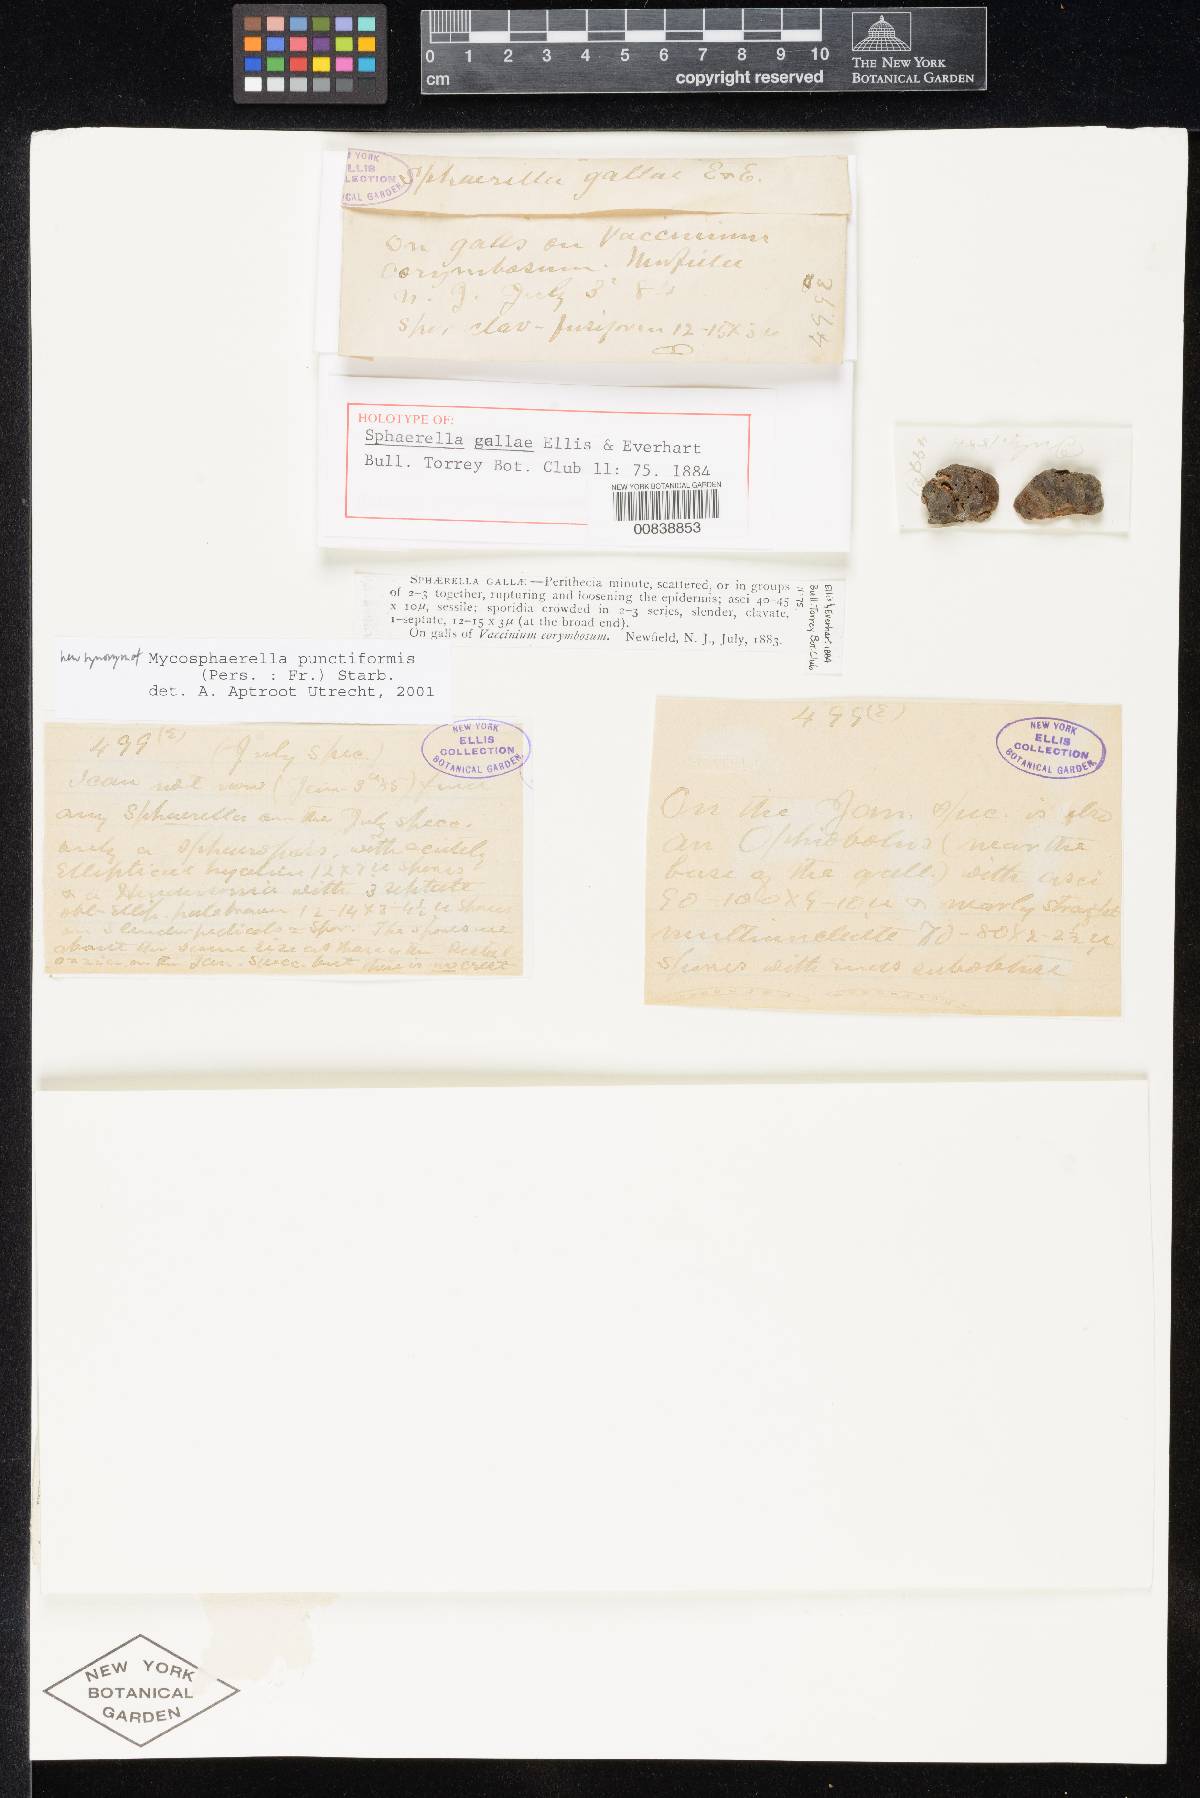 0 1 2 3 4 5 6 7 8 9 10
cm
copyright reserved
THE NEW YORK
BOTANICAL GARDEN
Sphaerella gallae E&E.
On galls on Vaccinium
corymbosum. Newfield
N. J. July 3
Spor clav-fusiform 12-15x3 u
HOLOTYPE OF:
Sphaerella gallae Ellis & Everhart
Bull. Torrey Bot. Club 11: 75. 1884
NEW YORK BOTANICAL GARDEN
00838853
SPHÆRELLA GALLÆ.—Perithecia minute, scattered, or in groups
of 2–3 together, rupturing and loosening the epidermis; asci 40–45
x 10μ, sessile; sporidia crowded in 2–3 series, slender, clavate,
1-septate, 12–15 x 3μ (at the broad end).
On galls of Vaccinium corymbosum. Newfield, N. J., July, 1883.
Ellis & Everhart 1884
Bull Torrey Bot. Club
11:75
new synonym of Mycosphaerella punctiformis
(Pers. : Fr.) Starb.
det. A. Aptroot Utrecht, 2001
NEW YORK
ELLIS
COLLECTION
BOTANICAL GARDEN.
499(E)
(July spec)
I can not now (Jan. 3 85) find
any Sphaerella on the July specc.
only a sphaeropsis, with acutely
Elliptical hyaline 12x7 u spores
& a Hendersonia with 3 septate
12-14x3-4½ u spores
on slender pedicels = spor. The spores are
about the same size as those in the
on the Jan. Specc. but there is no
499(E)
NEW YORK
ELLIS
COLLECTION
BOTANICAL GARDEN.
On the Jan. spec. is also
an Ophiobolus (near the
base of the gall) with asci
90-100x9-10 u & nearly straight
multinucleate 70-80x2-2½ u
spores with ends subobtuse
NEW YORK
BOTANICAL
GARDEN